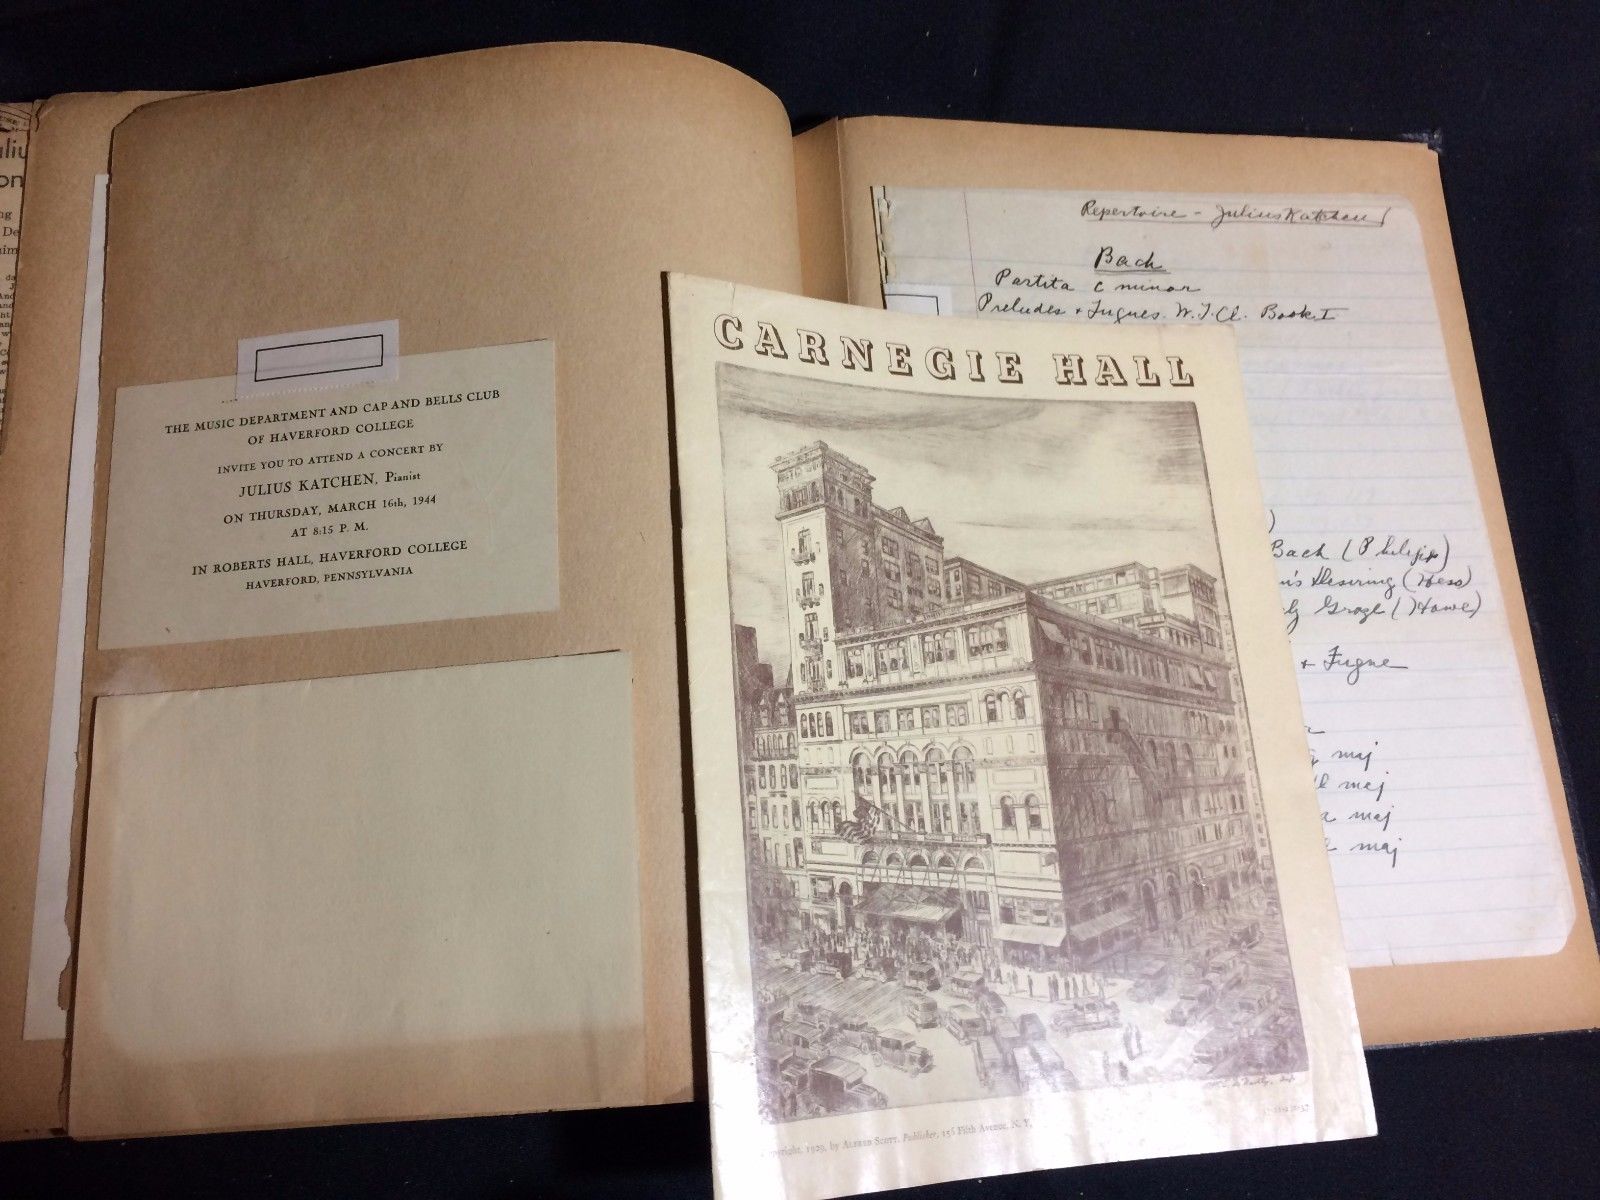 THE MUSIC DEPARTMENT AND CAP AND BELLS CLUB
OF HAVERFORD COLLEGE
INVITE YOU TO ATTEND A CONCERT BY
JULIUS KATCHEN, Pianist
ON THURSDAY, MARCH 16th, 1944
AT 8:15 P. M.
IN ROBERTS HALL, HAVERFORD COLLEGE
HAVERFORD, PENNSYLVANIA
CARNEGIE HALL
1929, by ALFRED SCOTT, Publisher, 156 Fifth Avenue, N. Y.
Repertoire - Julius Katchen
Bach
Partita C minor
Preludes + Fugues. W. T. Cl. Book I
Bach (Philipp)
Desiring (Hess)
Graze (Howe)
+ Fugue
maj
maj
a maj
maj